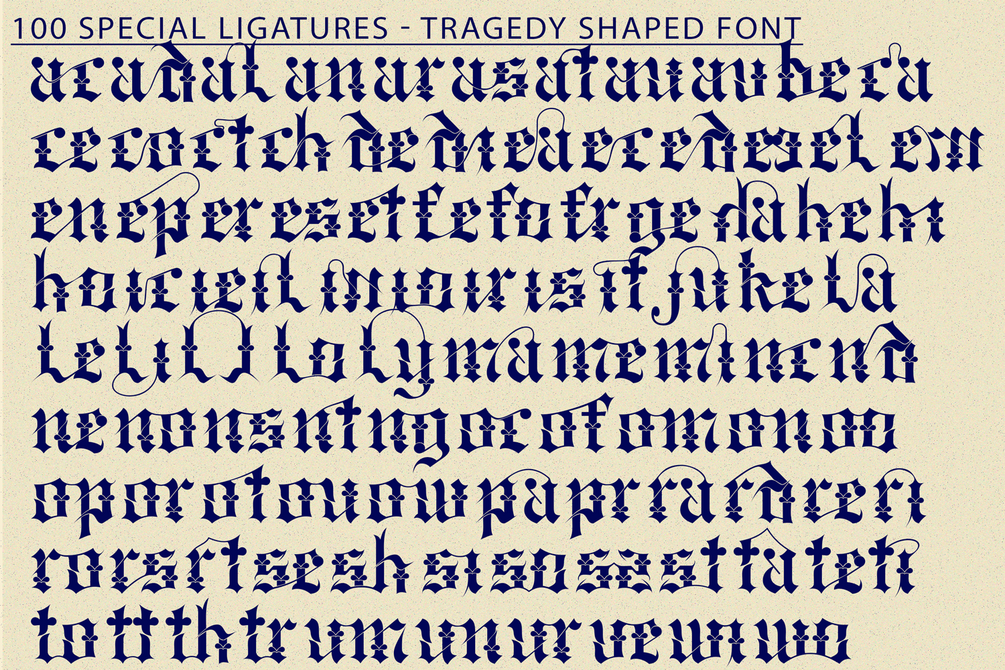 100 SPECIAL LIGATURES - TRAGEDY SHAPED FONT
ac ad al an ar as at au av be ca
ce co ct ch de ea ec ed el em
en ep er es et fe fo fr ge he hi
ho ic ie il in io ir is it ju ke la
le li ll lo ly ma me mi nc nd
ne no ns nt ng oc of om on oo
op or ot ou ow pa pr ra rd re ri
ro rs rt se sh si so st ta te ti
to tt th tr um un ur ve wi wo